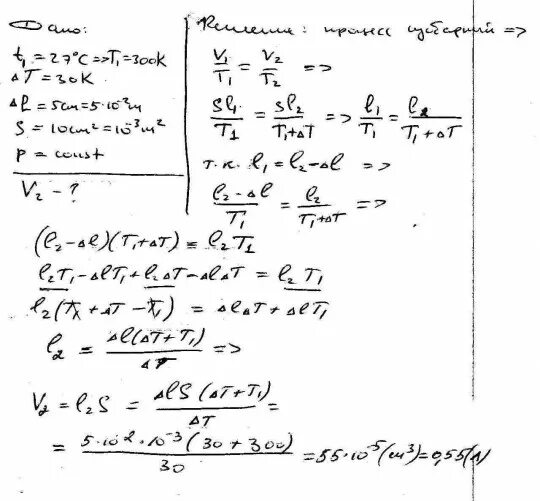 Дано:
t₁ = 27°C => T₁ = 300K
ΔT = 30K
Δl = 5cm = 5·10⁻²m
S = 10cm² = 10⁻³m²
p = const
V₂ - ?
Решение: процесс изобарный =>
V₁/T₁ = V₂/T₂ =>
Sl₁/T₁ = Sl₂/(T₁+ΔT) => l₁/T₁ = l₂/(T₁+ΔT)
т.к. l₁ = l₂-Δl =>
(l₂-Δl)/T₁ = l₂/(T₁+ΔT) =>
(l₂-Δl)(T₁+ΔT) = l₂T₁
l₂T₁-ΔlT₁+l₂ΔT-ΔlΔT = l₂T₁
l₂(T₁+ΔT-T₁) = ΔlΔT+ΔlT₁
l₂ = Δl(ΔT+T₁)/ΔT =>
V₂ = l₂S = ΔlS(ΔT+T₁)/ΔT =
= 5·10⁻²·10⁻³(30+300)/30 = 55·10⁻⁵(m³) = 0,55(л)